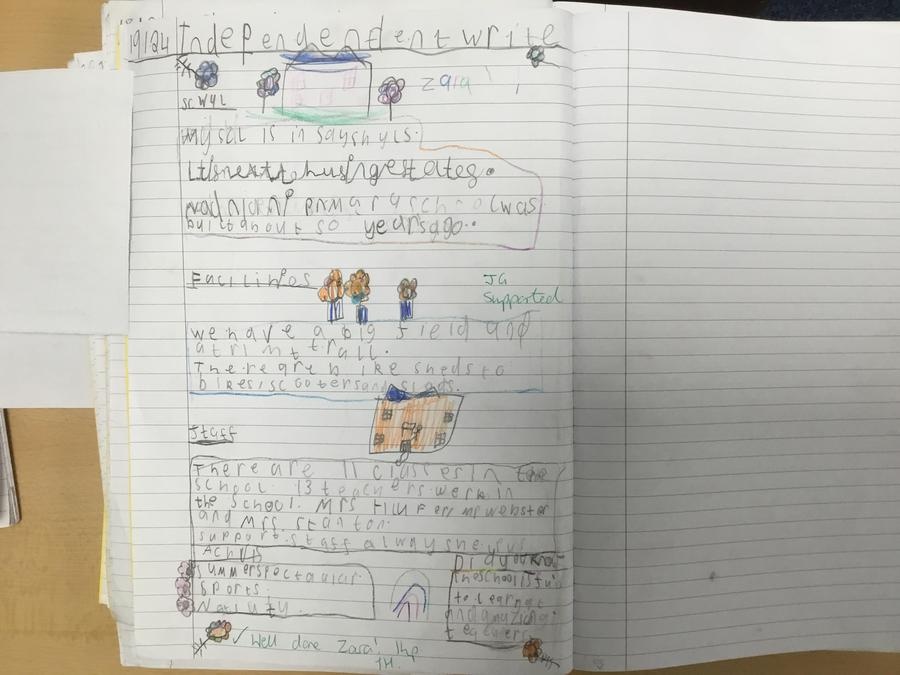 19/24 Independendent write
zara
scwyl
my scl is in sayshyls.
nadnidni primaraschoolwas
builtabout so yearsago..
Facilinos
JG
supported
we have a big field and
atrimtrall.
Thereare bikesheds to
bikes/scootersand slads.
staff
There are 11 classes in the
school. 13 teachers. work in
the school. Mrs webster
and Mrs. stanton.
support. staff always
summerspectacular.
sports.
Nativty.
Didyouknow
theschoolisfun
tolearnat
andamazing
teachers
✓ Well done Zara! 1hp
JH.